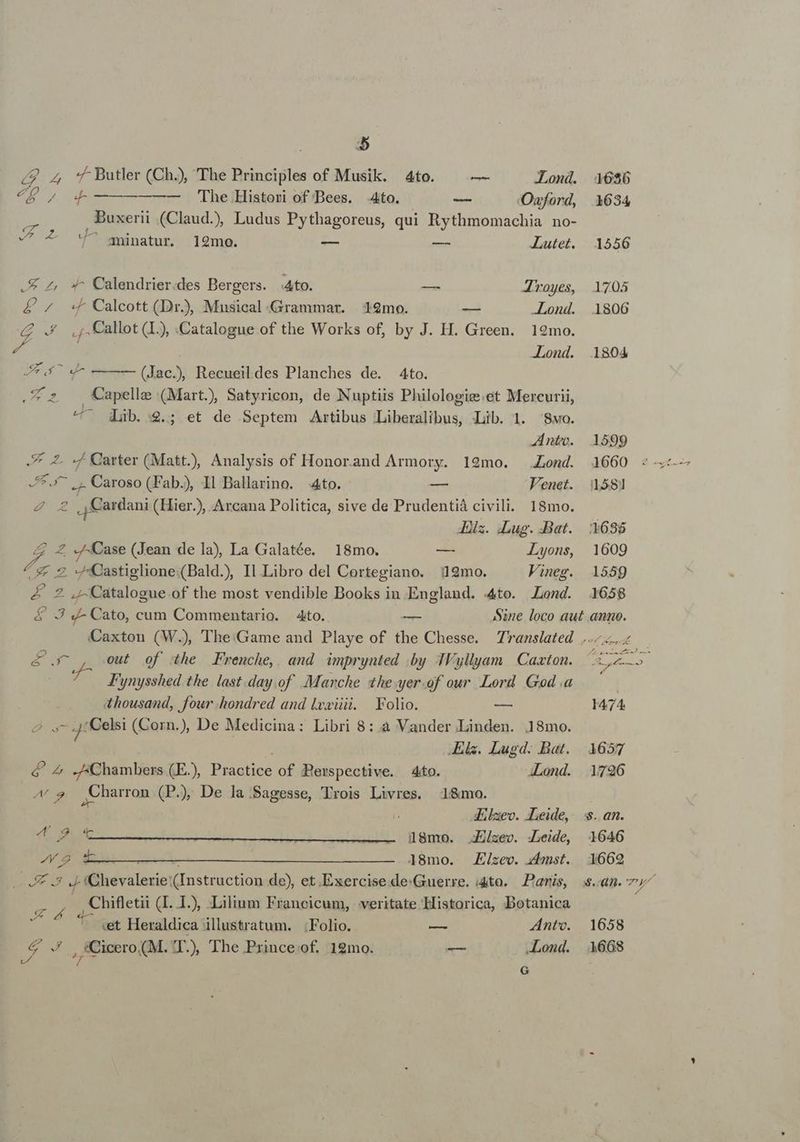 5
G 4 + Butler (Ch.), The Principles of Musik. 4to. — Lond. 1636
B 1 + ——— The Histori of Bees. 4to. — Oxford, 1634
Buxerii (Claud.), Ludus Pythagoreus, qui Rythmomachia no-
F 2 + minatur. 12mo. — — Lutet. 1556
F 4 + Calendrier des Bergers. 4to. — Troyes, 1705
E 1 + Calcott (Dr.), Musical Grammar. 12mo. — Lond. 1806
G I + Callot (I.), Catalogue of the Works of, by J. H. Green. 12mo.
Lond. 1804
F 5 + ——— (Jac.), Recueil des Planches de. 4to.
F 2 Capellæ (Mart.), Satyricon, de Nuptiis Philologiæ et Mercurii,
+ Lib. 2.; et de Septem Artibus Liberalibus, Lib. 1. 8vo.
Antv. 1599
F 2 + Carter (Matt.), Analysis of Honor and Armory. 12mo. Lond. 1660
F 5 + Caroso (Fab.), Il Ballarino. 4to. — Venet. 1581
2 + Cardani (Hier.), Arcana Politica, sive de Prudentiâ civili. 18mo.
Elz. Lug. Bat. 1635
G 2 + Case (Jean de la), La Galatée. 18mo. — Lyons, 1609
G 2 + Castiglione (Bald.), Il Libro del Cortegiano. 12mo. Vineg. 1559
E 2 + Catalogue of the most vendible Books in England. 4to. Lond. 1658
E 3 + Cato, cum Commentario. 4to. — Sine loco aut anno.
Caxton (W.), The Game and Playe of the Chesse. Translated
E 5 + out of the Frenche, and imprynted by Wyllyam Caxton.
Fynysshed the last day of Marche the yer of our Lord God a
thousand, four hondred and lxxiiii. Folio. — 1474
+ Celsi (Corn.), De Medicina: Libri 8: a Vander Linden. 18mo.
Elz. Lugd. Bat. 1657
E 4 + Chambers (E.), Practice of Perspective. 4to. Lond. 1726
N 9 Charron (P.), De la Sagesse, Trois Livres. 18mo.
Elzev. Leide, s. an.
N 9 + ——— 18mo. Elzev. Leide, 1646
N 9 + ——— 18mo. Elzev. Amst. 1662
F 3 + Chevalerie (Instruction de), et Exercise de Guerre. 4to. Paris, s. an.
Chifletii (I. I.), Lilium Francicum, veritate Historica, Botanica
F 6 + et Heraldica illustratum. Folio. — Antv. 1658
G I + Cicero (M. T.), The Prince of. 12mo. — Lond. 1668
G